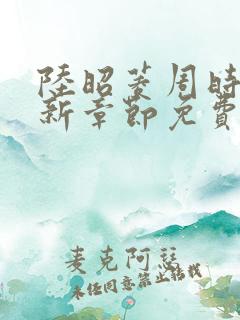 陸昭菱周時
新章節免費
麦克阿瑟
未经同意禁止转载